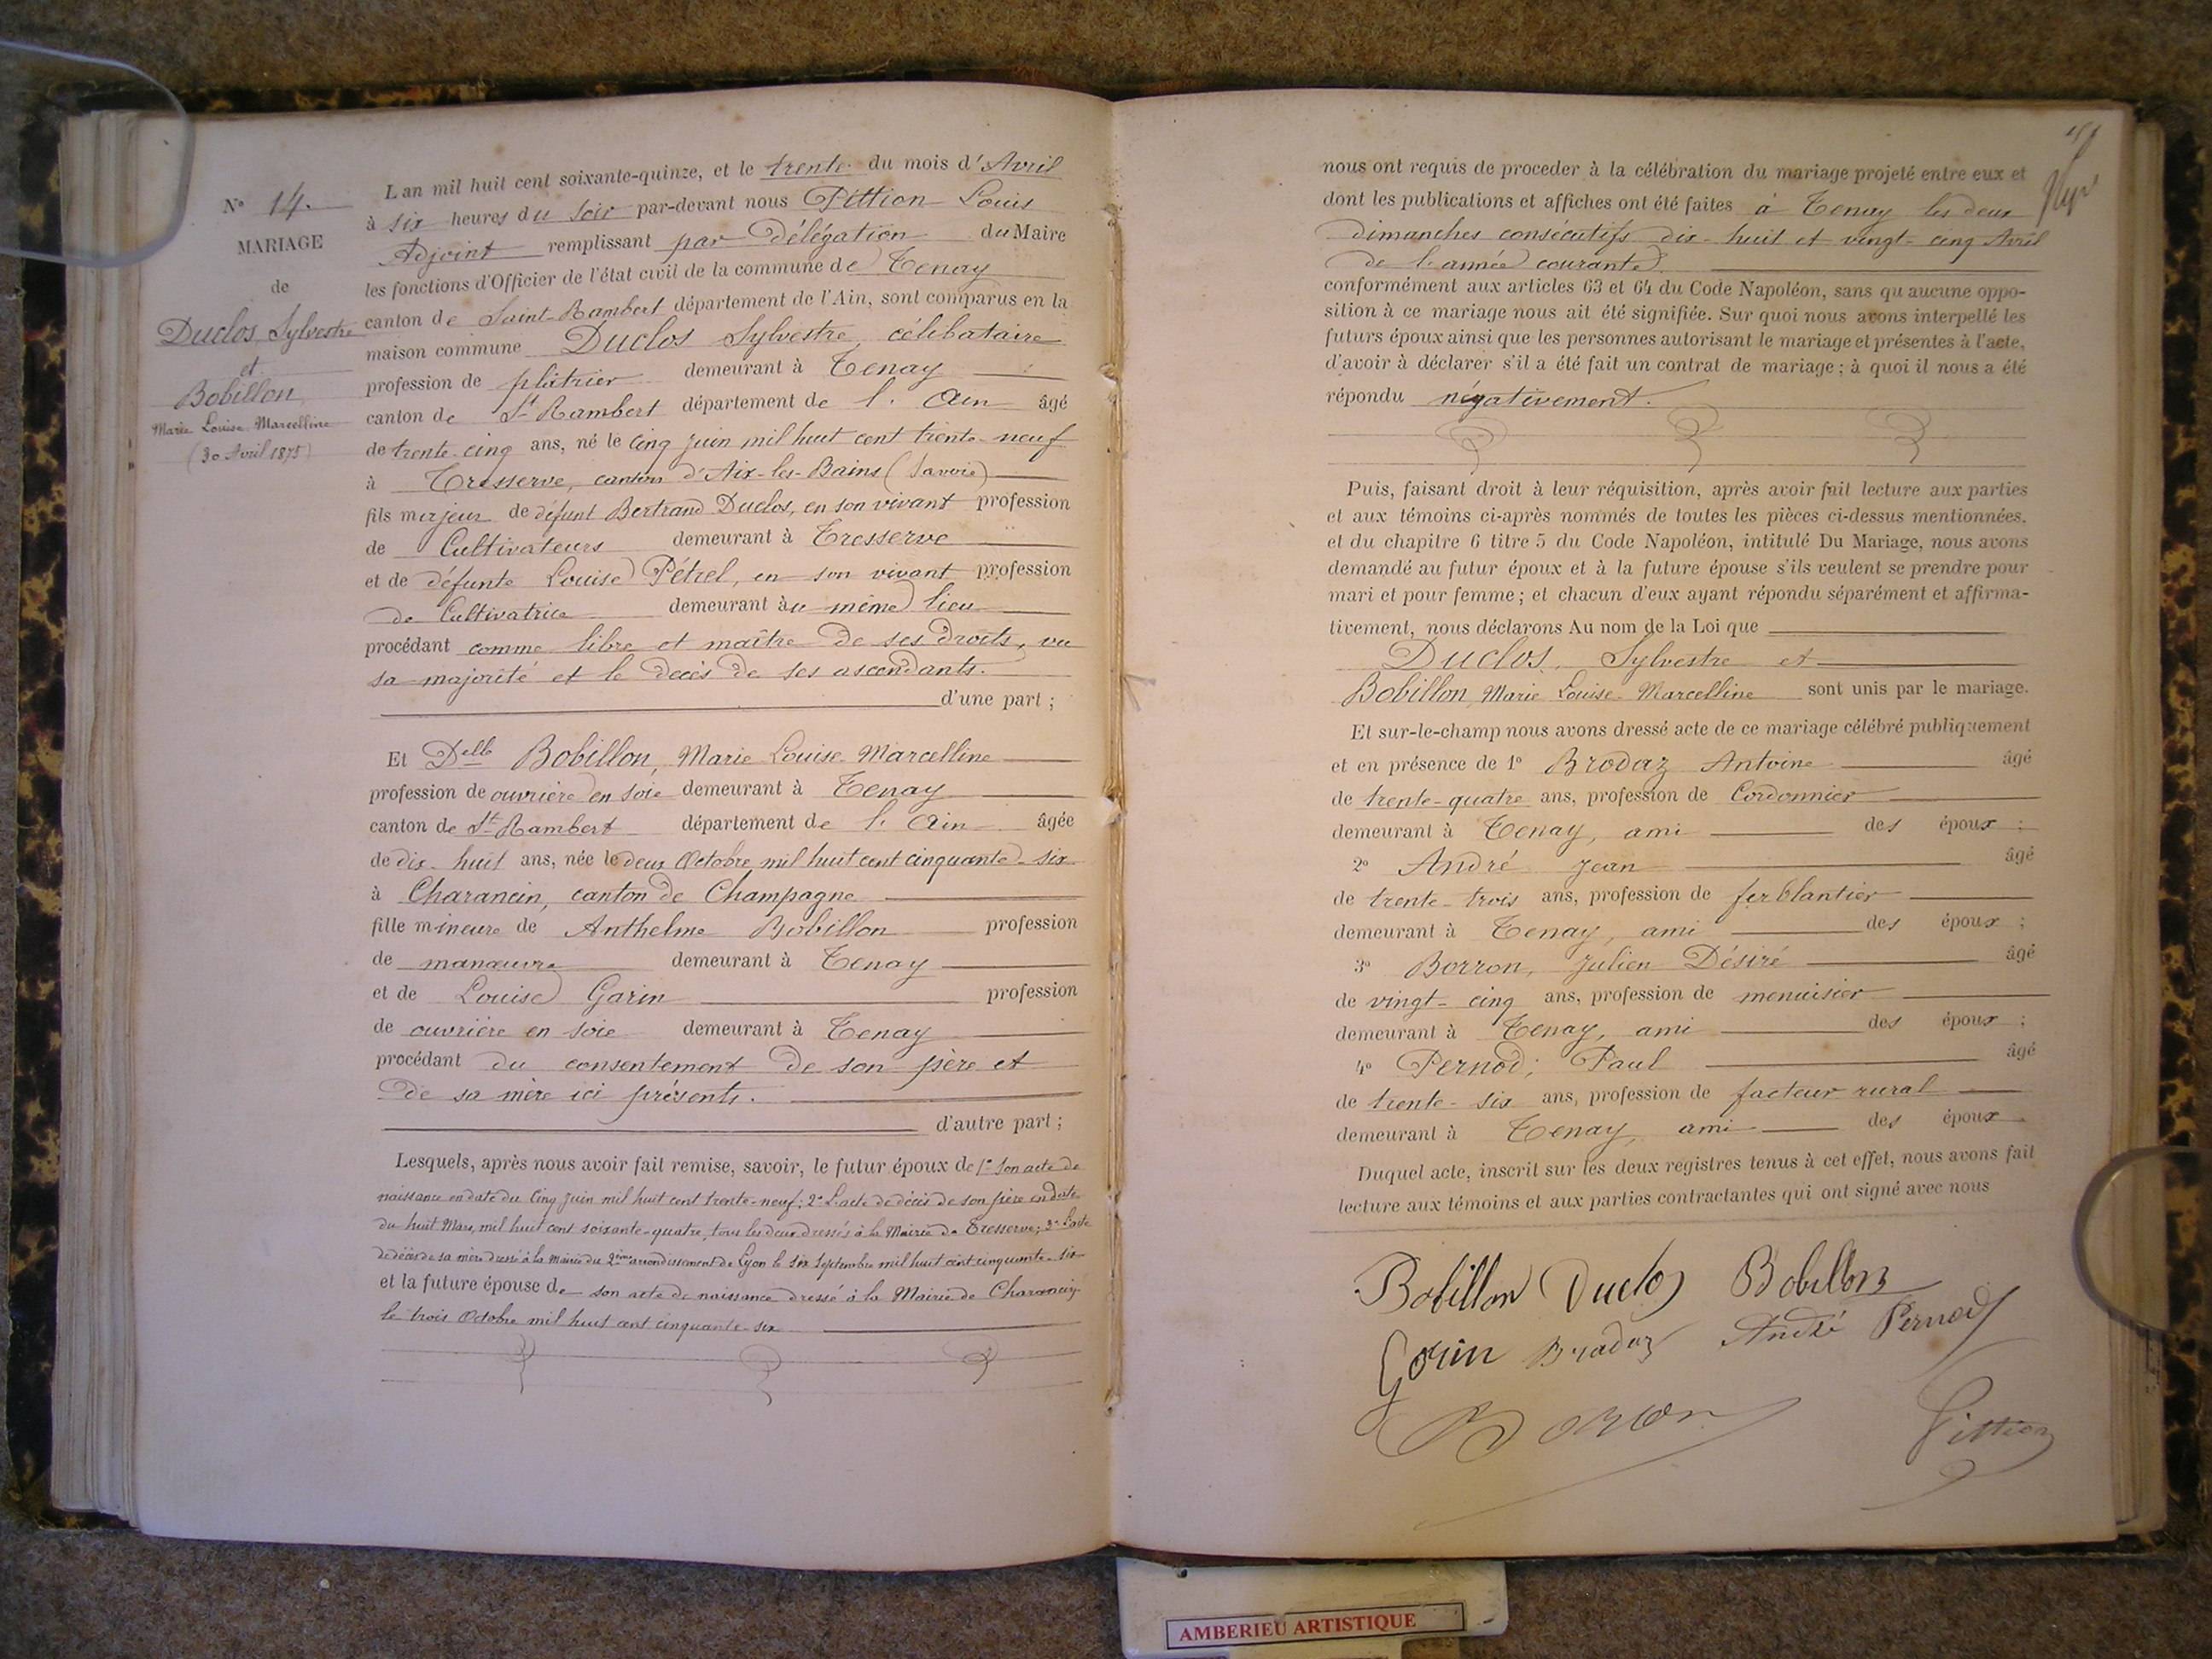 N° 14.
MARIAGE
de
Duclos Sylvestre
et
Bobillon
Marie Louise Marcelline
(30 Avril 1875)
L an mil huit cent soixante-quinze, et le trente du mois d'Avril
à six heures du soir par-devant nous Pittion Louis
Adjoint remplissant par Délégation du Maire
les fonctions d'Officier de l'état civil de la commune de Tenay
canton de Saint-Rambert département de l'Ain, sont comparus en la
maison commune Duclos Sylvestre, célibataire
profession de plâtrier demeurant à Tenay
canton de St Rambert département de l'Ain âgé
de trente-cinq ans, né le cinq juin mil huit cent trente-neuf
à Tresserve, canton d'Aix-les-Bains (Savoie)
fils majeur de défunt Bertrand Duclos, en son vivant profession
de Cultivateurs demeurant à Tresserve
et de défunte Louise Pétrel, en son vivant profession
de Cultivatrice demeurant àu même lieu
procédant comme libre et maître de ses droits, vu
sa majorité et le décès de ses ascendants.
d'une part ;
Et Delle Bobillon, Marie Louise-Marcelline
profession de ouvrière en soie demeurant à Tenay
canton de St-Rambert département de l'Ain âgée
de dix-huit ans, née le deux Octobre mil huit cent cinquante-six
à Charancin, canton de Champagne
fille mineure de Anthelme Bobillon profession
de manœuvre demeurant à Tenay
et de Louise Garin profession
de ouvrière en soie demeurant à Tenay
procédant du consentement de son père et
de sa mère ici présents.
d'autre part ;
Lesquels, après nous avoir fait remise, savoir, le futur époux de 1° Son acte de
naissance en date du cinq juin mil huit cent trente-neuf; 2° L'acte de décès de son père en date
du huit Mars, mil huit cent soixante-quatre, tous les deux dressés à la Mairie de Tresserve; 3° L'acte
de décès de sa mère dressé à la Mairie du 2ème arrondissement de Lyon le six Septembre mil huit cent cinquante-six
et la future épouse de son acte de naissance dressé à la Mairie de Charancin
le trois Octobre mil huit cent cinquante-six
nous ont requis de proceder à la célébration du mariage projeté entre eux et
dont les publications et affiches ont été faites à Tenay les deux
dimanches consécutifs dix-huit et vingt-cinq Avril
de l'année courante.
conformément aux articles 63 et 64 du Code Napoléon, sans qu aucune oppo-
sition à ce mariage nous ait été signifiée. Sur quoi nous avons interpellé les
futurs époux ainsi que les personnes autorisant le mariage et présentes à l'acte,
d'avoir à déclarer s'il a été fait un contrat de mariage ; à quoi il nous a été
répondu négativement.
Puis, faisant droit à leur réquisition, après avoir fait lecture aux parties
et aux témoins ci-après nommés de toutes les pièces ci-dessus mentionnées,
et du chapitre 6 titre 5 du Code Napoléon, intitulé Du Mariage, nous avons
demandé au futur époux et à la future épouse s'ils veulent se prendre pour
mari et pour femme ; et chacun d'eux ayant répondu séparément et affirma-
tivement, nous déclarons Au nom de la Loi que
Duclos, Sylvestre et
Bobillon, Marie Louise-Marcelline sont unis par le mariage.
Et sur-le-champ nous avons dressé acte de ce mariage célébré publiquement
et en présence de 1° Brodaz Antoine âgé
de trente-quatre ans, profession de Cordonnier
demeurant à Tenay, ami des époux ;
2° André Jean âgé
de trente-trois ans, profession de ferblantier
demeurant à Tenay, ami des époux ;
3° Borron, Julien Désiré âgé
de vingt-cinq ans, profession de menuisier
demeurant à Tenay, ami des époux ;
4° Pernod, Paul âgé
de trente-six ans, profession de facteur rural
demeurant à Tenay, ami des époux
Duquel acte, inscrit sur les deux registres tenus à cet effet, nous avons fait
lecture aux témoins et aux parties contractantes qui ont signé avec nous
Bobillon Duclos Bobillon
Gorin Brodaz André Pernod
Borron Pittion
AMBERIEU ARTISTIQUE